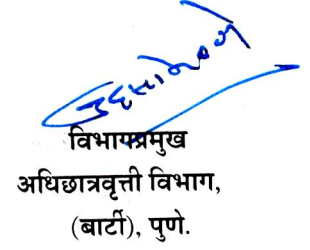 विभागप्रमुख
अधिछात्रवृत्ती विभाग,
(बार्टी), पुणे.